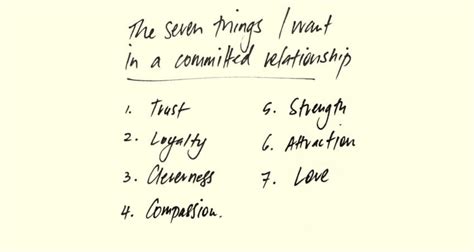 The seven things I want
in a committed relationship
1. Trust
2. Loyalty
3. Cleverness
4. Compassion.
5. Strength
6. Attraction
7. Love